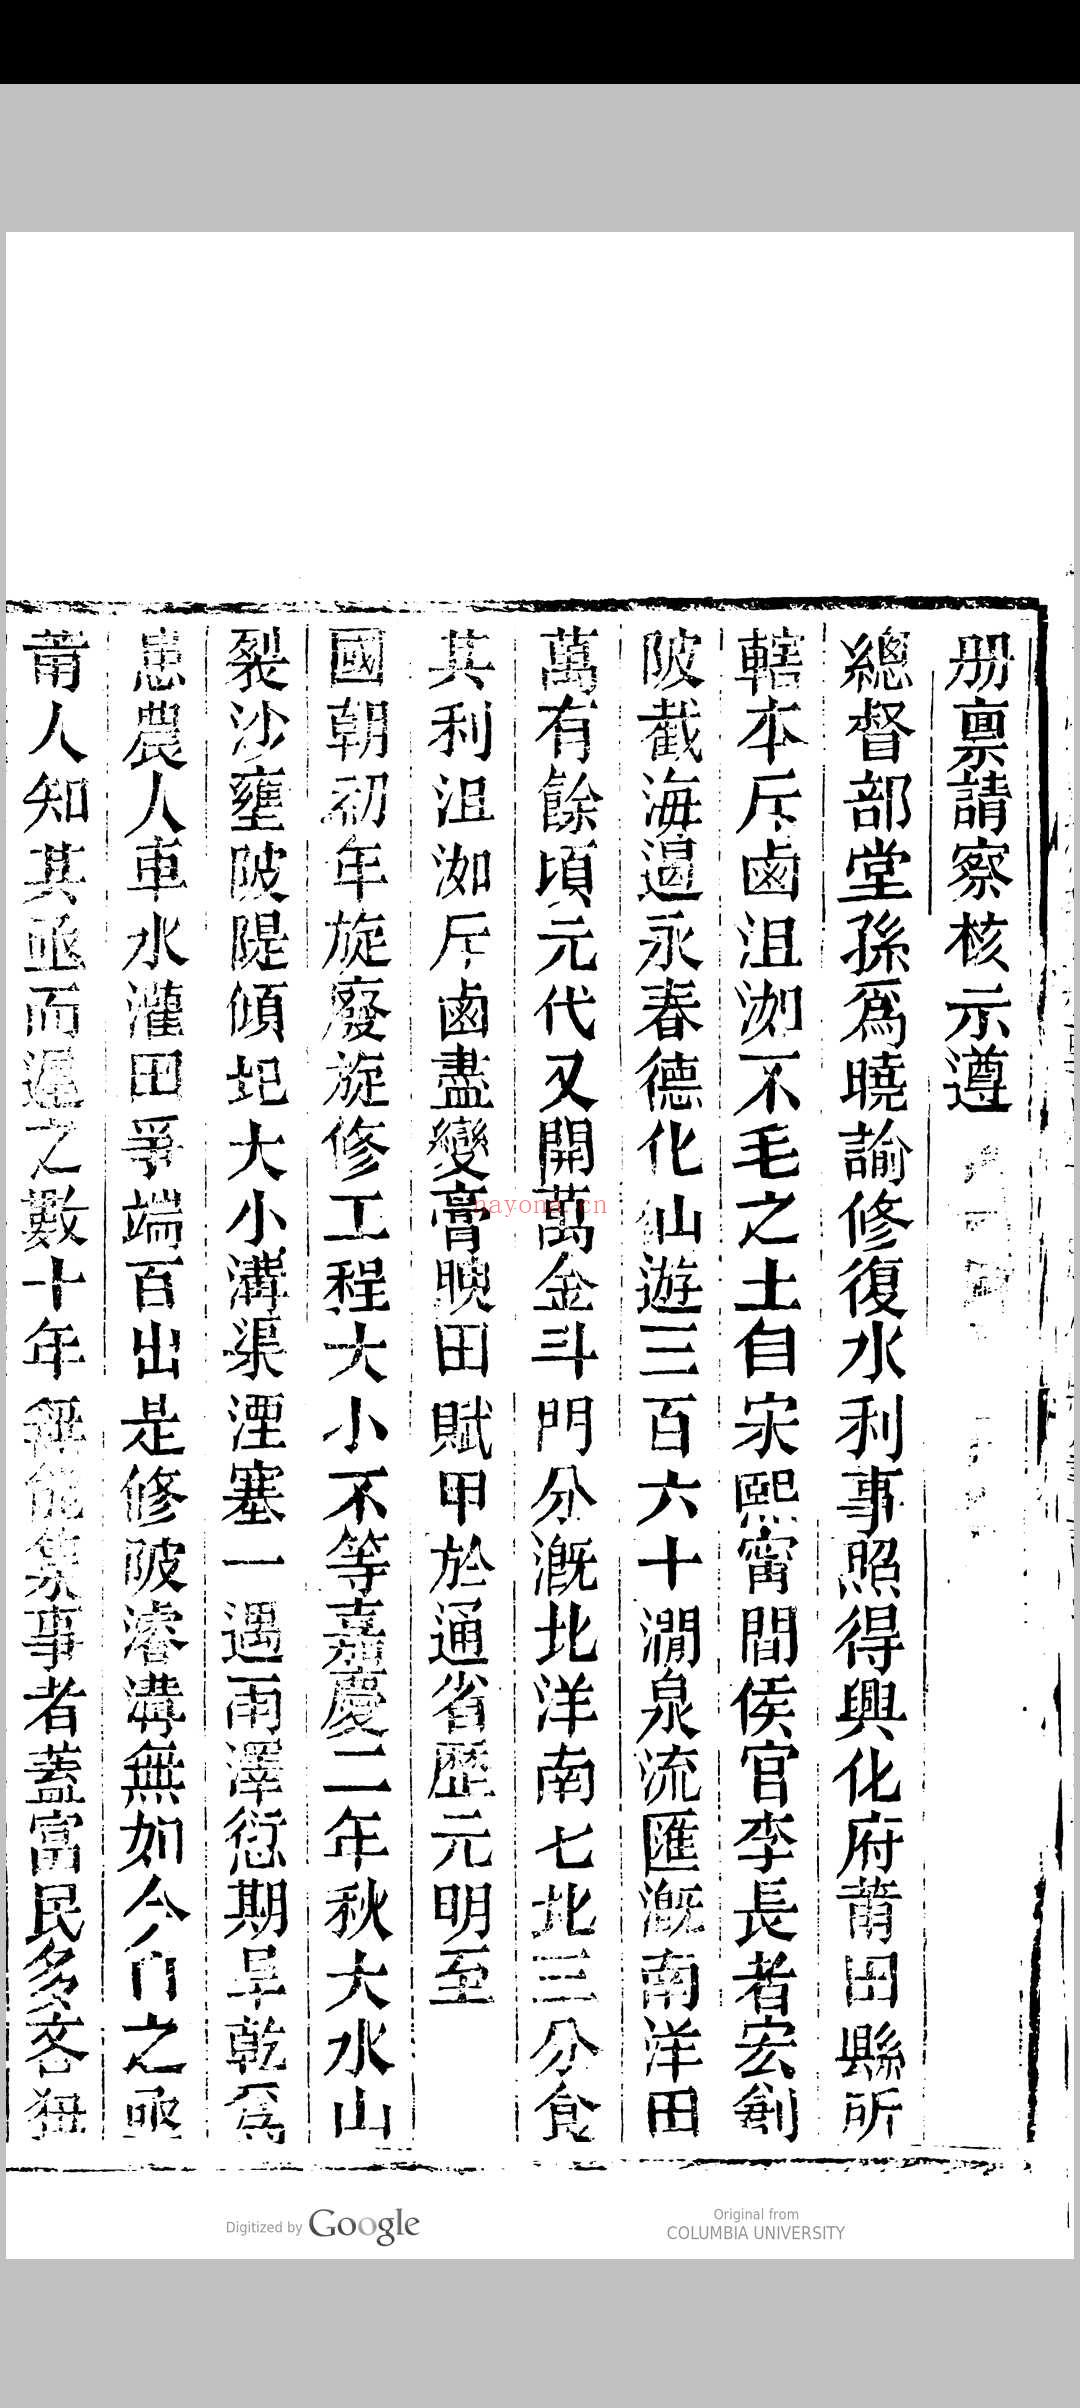 册稟請察核示遵
總督部堂孫爲曉諭修復水利事照得興化府莆田縣所
轄本斥鹵沮洳不毛之土自宋熙甯間侯官李長者宏創
陂截海遏永春德化仙遊三百六十澗泉流匯溉南洋田
萬有餘頃元代又開萬金斗門分溉北洋南七北三分食
其利沮洳斥鹵盡變膏腴田賦甲於通省歷元明至
國朝初年旋廢旋修工程大小不等嘉慶二年秋大水山
裂沙壅陂隄傾圮大小溝渠湮塞一遇雨澤愆期旱乾爲
患農人車水灌田爭端百出是修陂濬溝無如今日之亟
莆人知其亟而遲之數十年無能集事者蓋富民多吝狃
nayona.cn
Digitized by Google
Original from
COLUMBIA UNIVERSITY